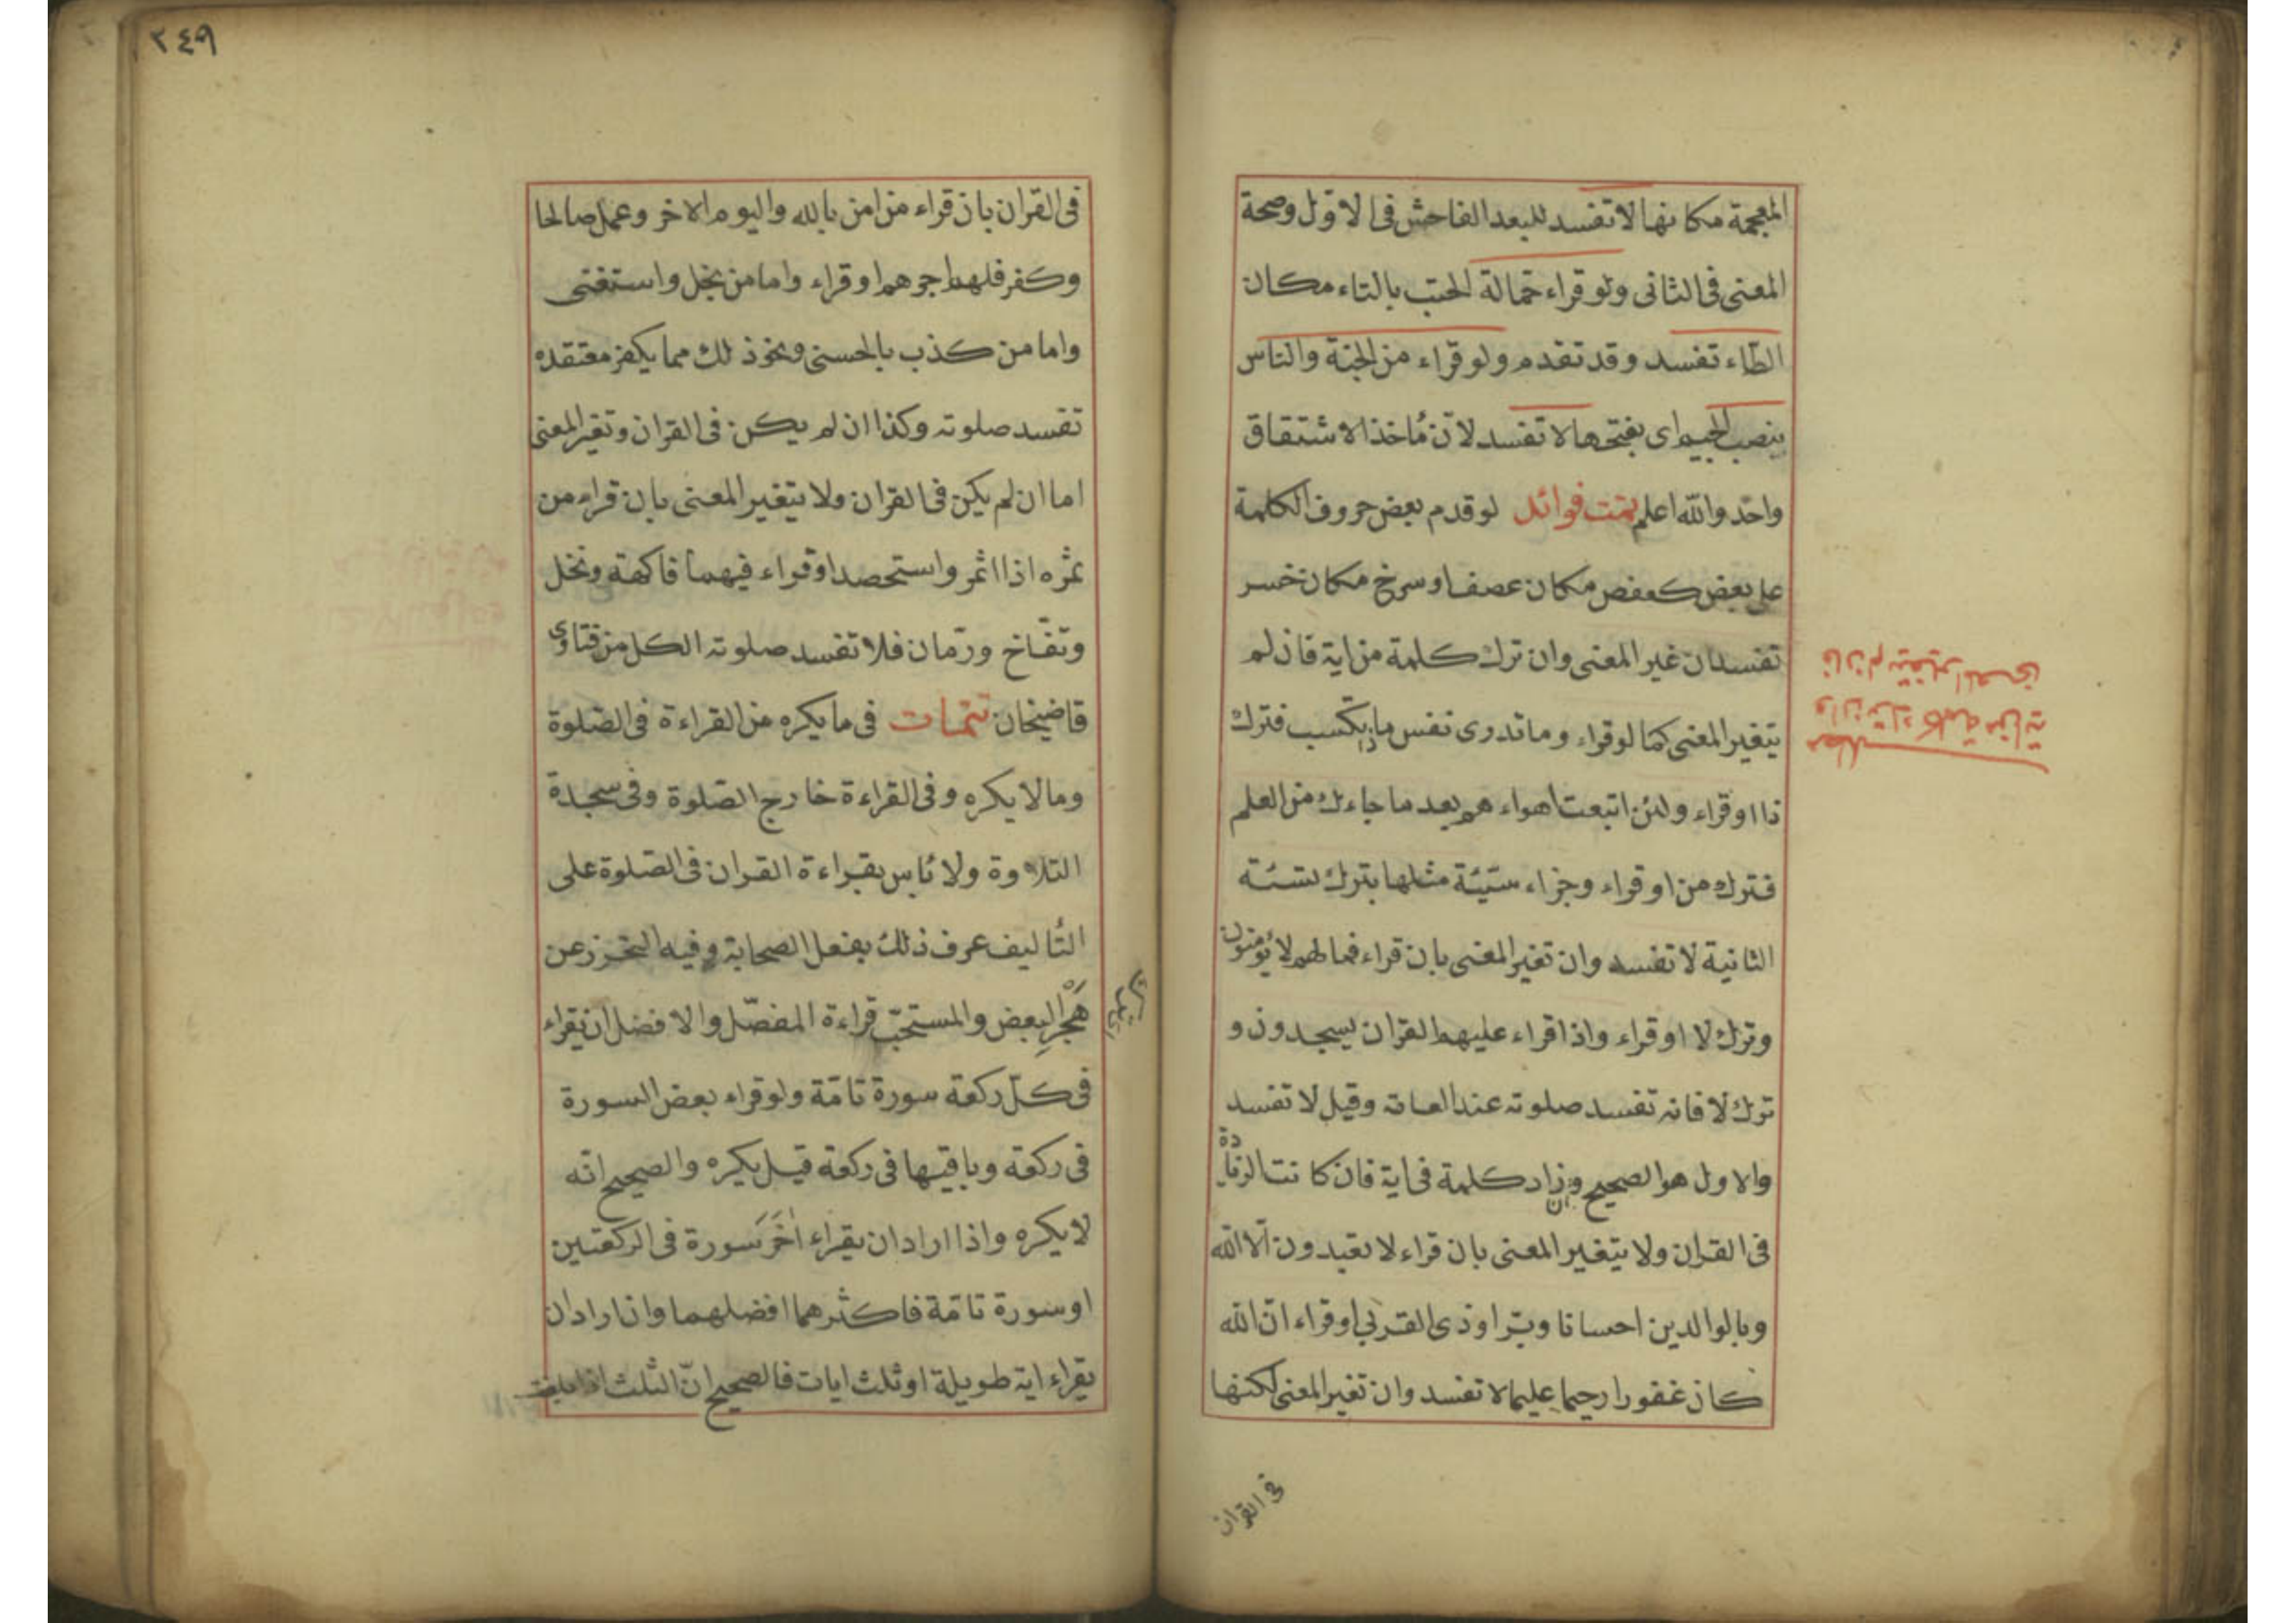 المعجمة مكانها لا تفسد للبعد الفاحش فى الاول وصحة
المعنى فى الثانى ولو قراء حمالة الحتب بالتاء مكان
الطاء تفسد وقد تقدم ولو قراء من الجنة والناس
بنصب الجيم اى بفتحها لا تفسد لان مأخذ الاشتقاق
واحد والله اعلم تمت فوائد لو قدم بعض حروف الكلمة
على بعض كعفص مكان عصف او سرخ مكان خسر
تفسد ان غير المعنى وان ترك كلمة من اية فان لم
يتغير المعنى كما لو قراء وما تدرى نفس ماذا تكسب فترك
ذا او قراء ولئن اتبعت اهواءهم بعد ما جاءك من العلم
فترك من او قراء وجزاء سيئة مثلها بترك سيئة
الثانية لا تفسد وان تغير المعنى بان قراء فما لهم لا يؤمنون
وترك لا او قراء واذا قراء عليهم القران يسجدون و
ترك لا فانه تفسد صلوته عند العامة وقيل لا تفسد
والاول هو الصحيح وان زاد كلمة فى اية فان كانت الزيادة
فى القران ولا يتغير المعنى بان قراء لا تعبدون الا الله
وبالوالدين احسانا وبرا وذى القربى او قراء ان الله
كان غفورا رحيما عليما لا تفسد وان تغير المعنى لكنها
فى القران
مطلب
وان ترك كلمة من اية
فان لم يتغير المعنى
٢٤٩
فى القران بان قراء من امن بالله واليوم الاخر وعمل صالحا
وكفر فلهم اجرهم او قراء واما من بخل واستغنى
واما من كذب بالحسنى ونحو ذلك مما يكفر معتقده
تفسد صلوته وكذا ان لم يكن فى القران وتغير المعنى
اما ان لم يكن فى القران ولا يتغير المعنى بان قراء من
ثمره اذا اثمر واستحصد او قراء فيهما فاكهة ونخل
وتفاخ ورمان فلا تفسد صلوته الكل من فتاوى
قاضيخان تتمات فى ما يكره من القراءة فى الصلوة
وما لا يكره وفى القراءة خارج الصلوة وفى سجدة
التلاوة ولا بأس بقراءة القران فى الصلوة على
التأليف عرف ذلك بفعل الصحابة وفيه التحرز عن
هجر البعض والمستحب قراءة المفصل والافضل ان يقراء
فى كل ركعة سورة تامة ولو قراء بعض السورة
فى ركعة وباقيها فى ركعة قيل يكره والصحيح انه
لا يكره واذا اراد ان يقراء اخر سورة فى الركعتين
او سورة تامة فاكثرهما افضلهما وان اراد ان
يقراء اية طويلة او ثلث ايات فالصحيح ان الثلث اذا بلغت